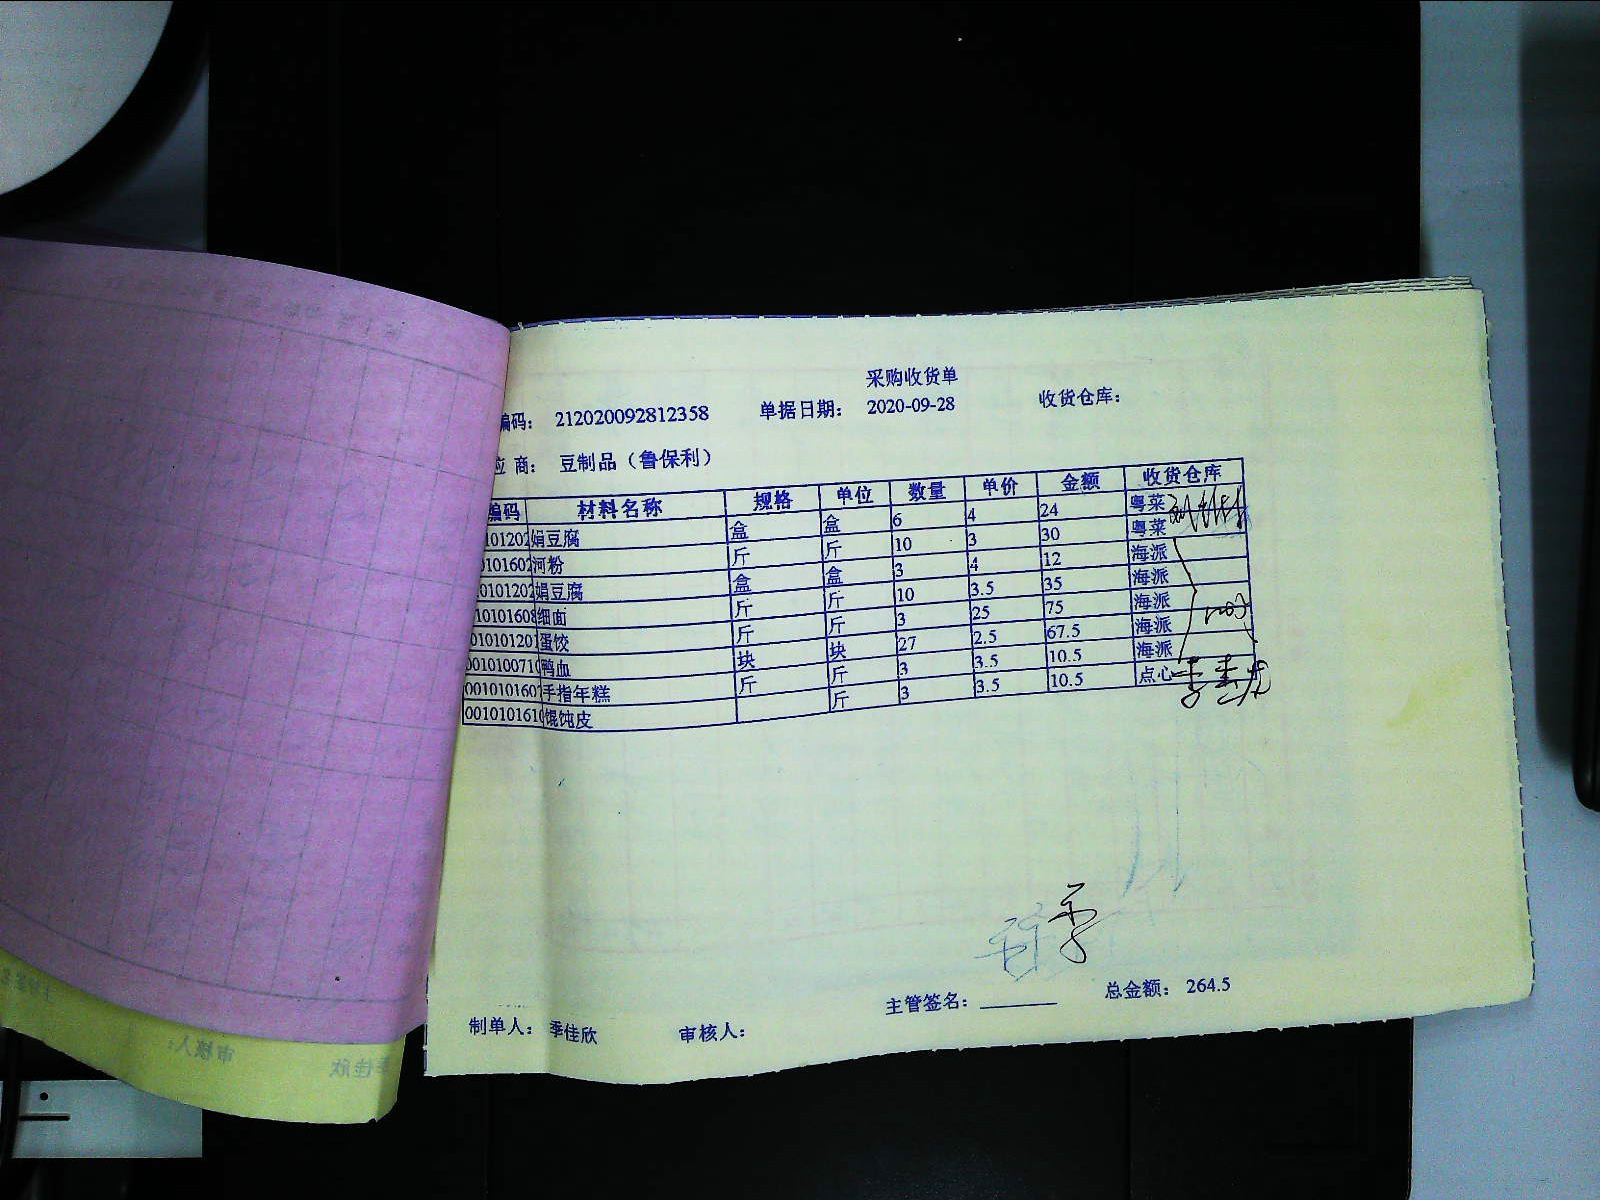 采购收货单
编码： 212020092812358 单据日期： 2020-09-28 收货仓库：
应 商： 豆制品（鲁保利）
编码 材料名称 规格 单位 数量 单价 金额 收货仓库
101202 娟豆腐 盒 盒 6 4 24 粤菜
0101602 河粉 斤 斤 10 3 30 粤菜
0101202 娟豆腐 盒 盒 3 4 12 海派
10101608 细面 斤 斤 10 3.5 35 海派
010101201 蛋饺 斤 斤 3 25 75 海派
0010100710 鸭血 块 块 27 2.5 67.5 海派
0010101607 手指年糕 斤 斤 3 3.5 10.5 海派
0010101610 馄饨皮 斤 3 3.5 10.5 点心
主管签名： 总金额： 264.5
制单人： 季佳欣 审核人：